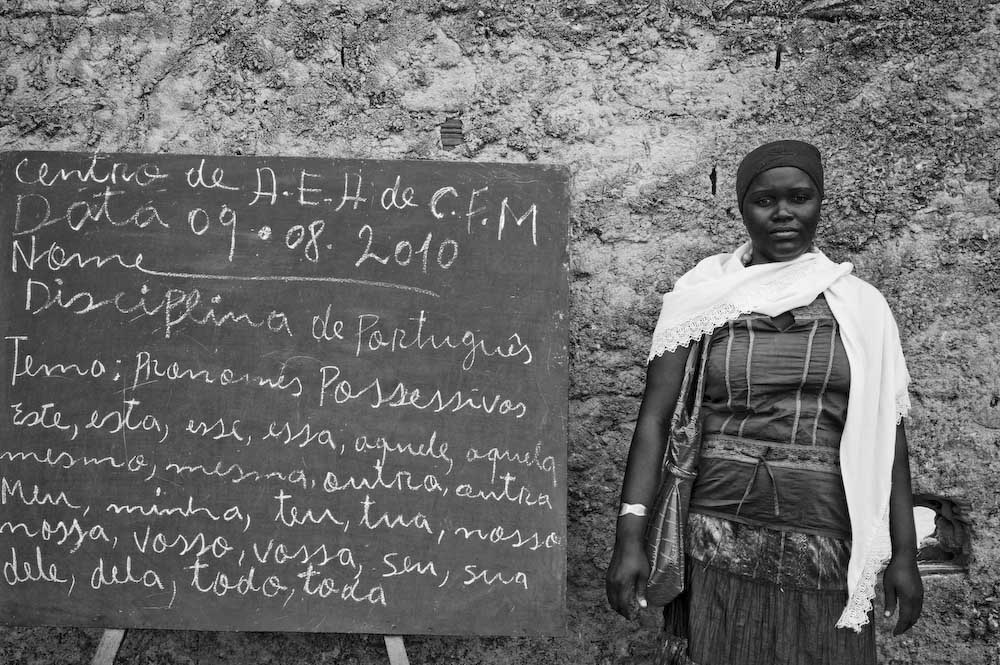 Centro de A.E.A de C.F.M
Data 09.08.2010
Nome
Disciplina de Português
Tema: Pronomes Possessivos
Este, esta, esse, essa, aquele, aquela
mesmo, mesma, outro, outra
Meu, minha, teu, tua, nosso
nossa, vosso, vossa, seu, sua
dele, dela, todo, toda